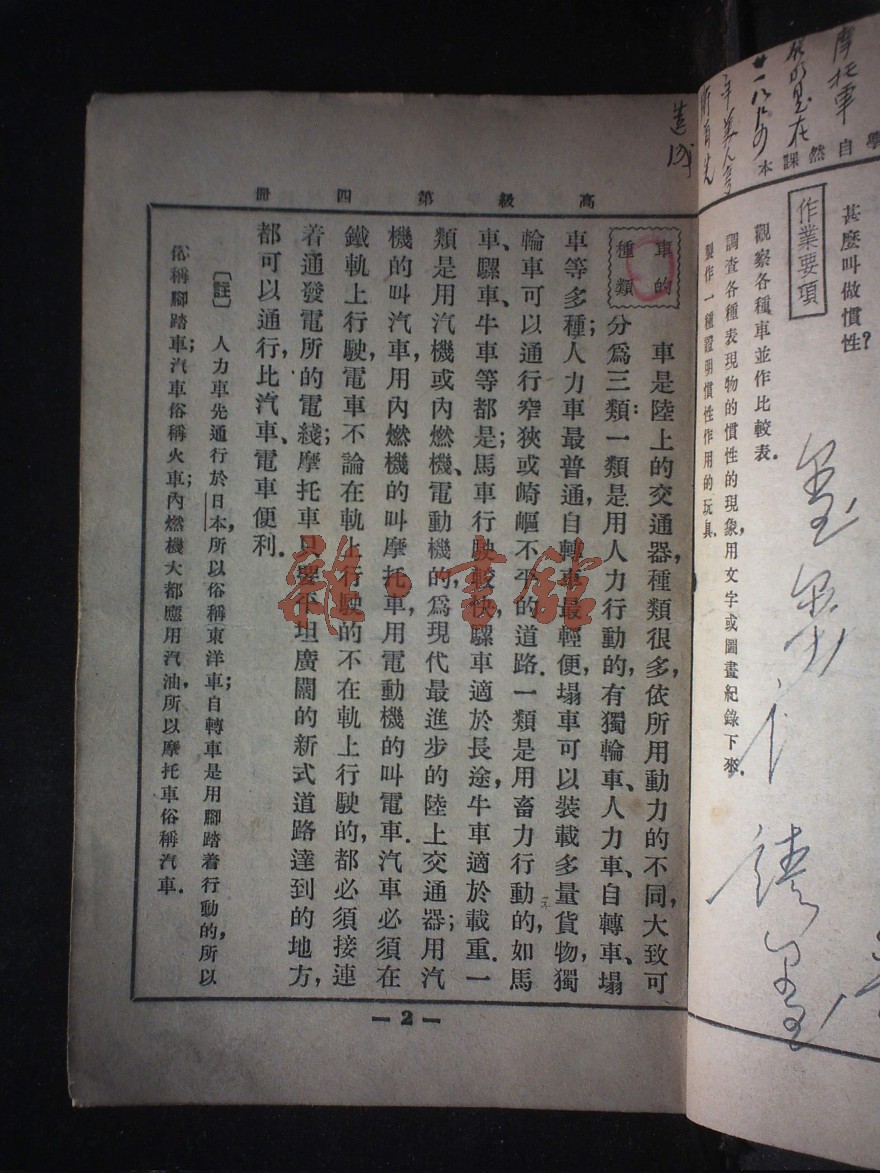 高級第四冊
車的
種類
車是陸上的交通器,種類很多,依所用動力的不同,大致可
分爲三類:一類是用人力行動的,有獨輪車、人力車、自轉車、塌
車等多種;人力車最普通,自轉車最輕便,塌車可以裝載多量貨物,獨
輪車可以通行窄狹或崎嶇不平的道路.一類是用畜力行動的,如馬
車、騾車、牛車等都是;馬車行駛較快,騾車適於長途,牛車適於載重.一
類是用汽機或內燃機、電動機的,爲現代最進步的陸上交通器;用汽
機的叫汽車,用內燃機的叫摩托車,用電動機的叫電車.汽車必須在
鐵軌上行駛,電車不論在軌上行駛的不在軌上行駛的,都必須接連
着通發電所的電綫;摩托車只要平坦廣闊的新式道路達到的地方,
都可以通行,比汽車、電車便利.
〔註〕 人力車先通行於日本,所以俗稱東洋車;自轉車是用腳踏着行動的,所以
俗稱腳踏車;汽車俗稱火車;內燃機大都應用汽油,所以摩托車俗稱汽車.
— 2 —
學自然課本
甚麼叫做慣性?
作業要項
觀察各種車並作比較表.
調查各種表現物的慣性的現象,用文字或圖畫紀錄下來.
製作一種證明慣性作用的玩具.
摩托車
雜·書館